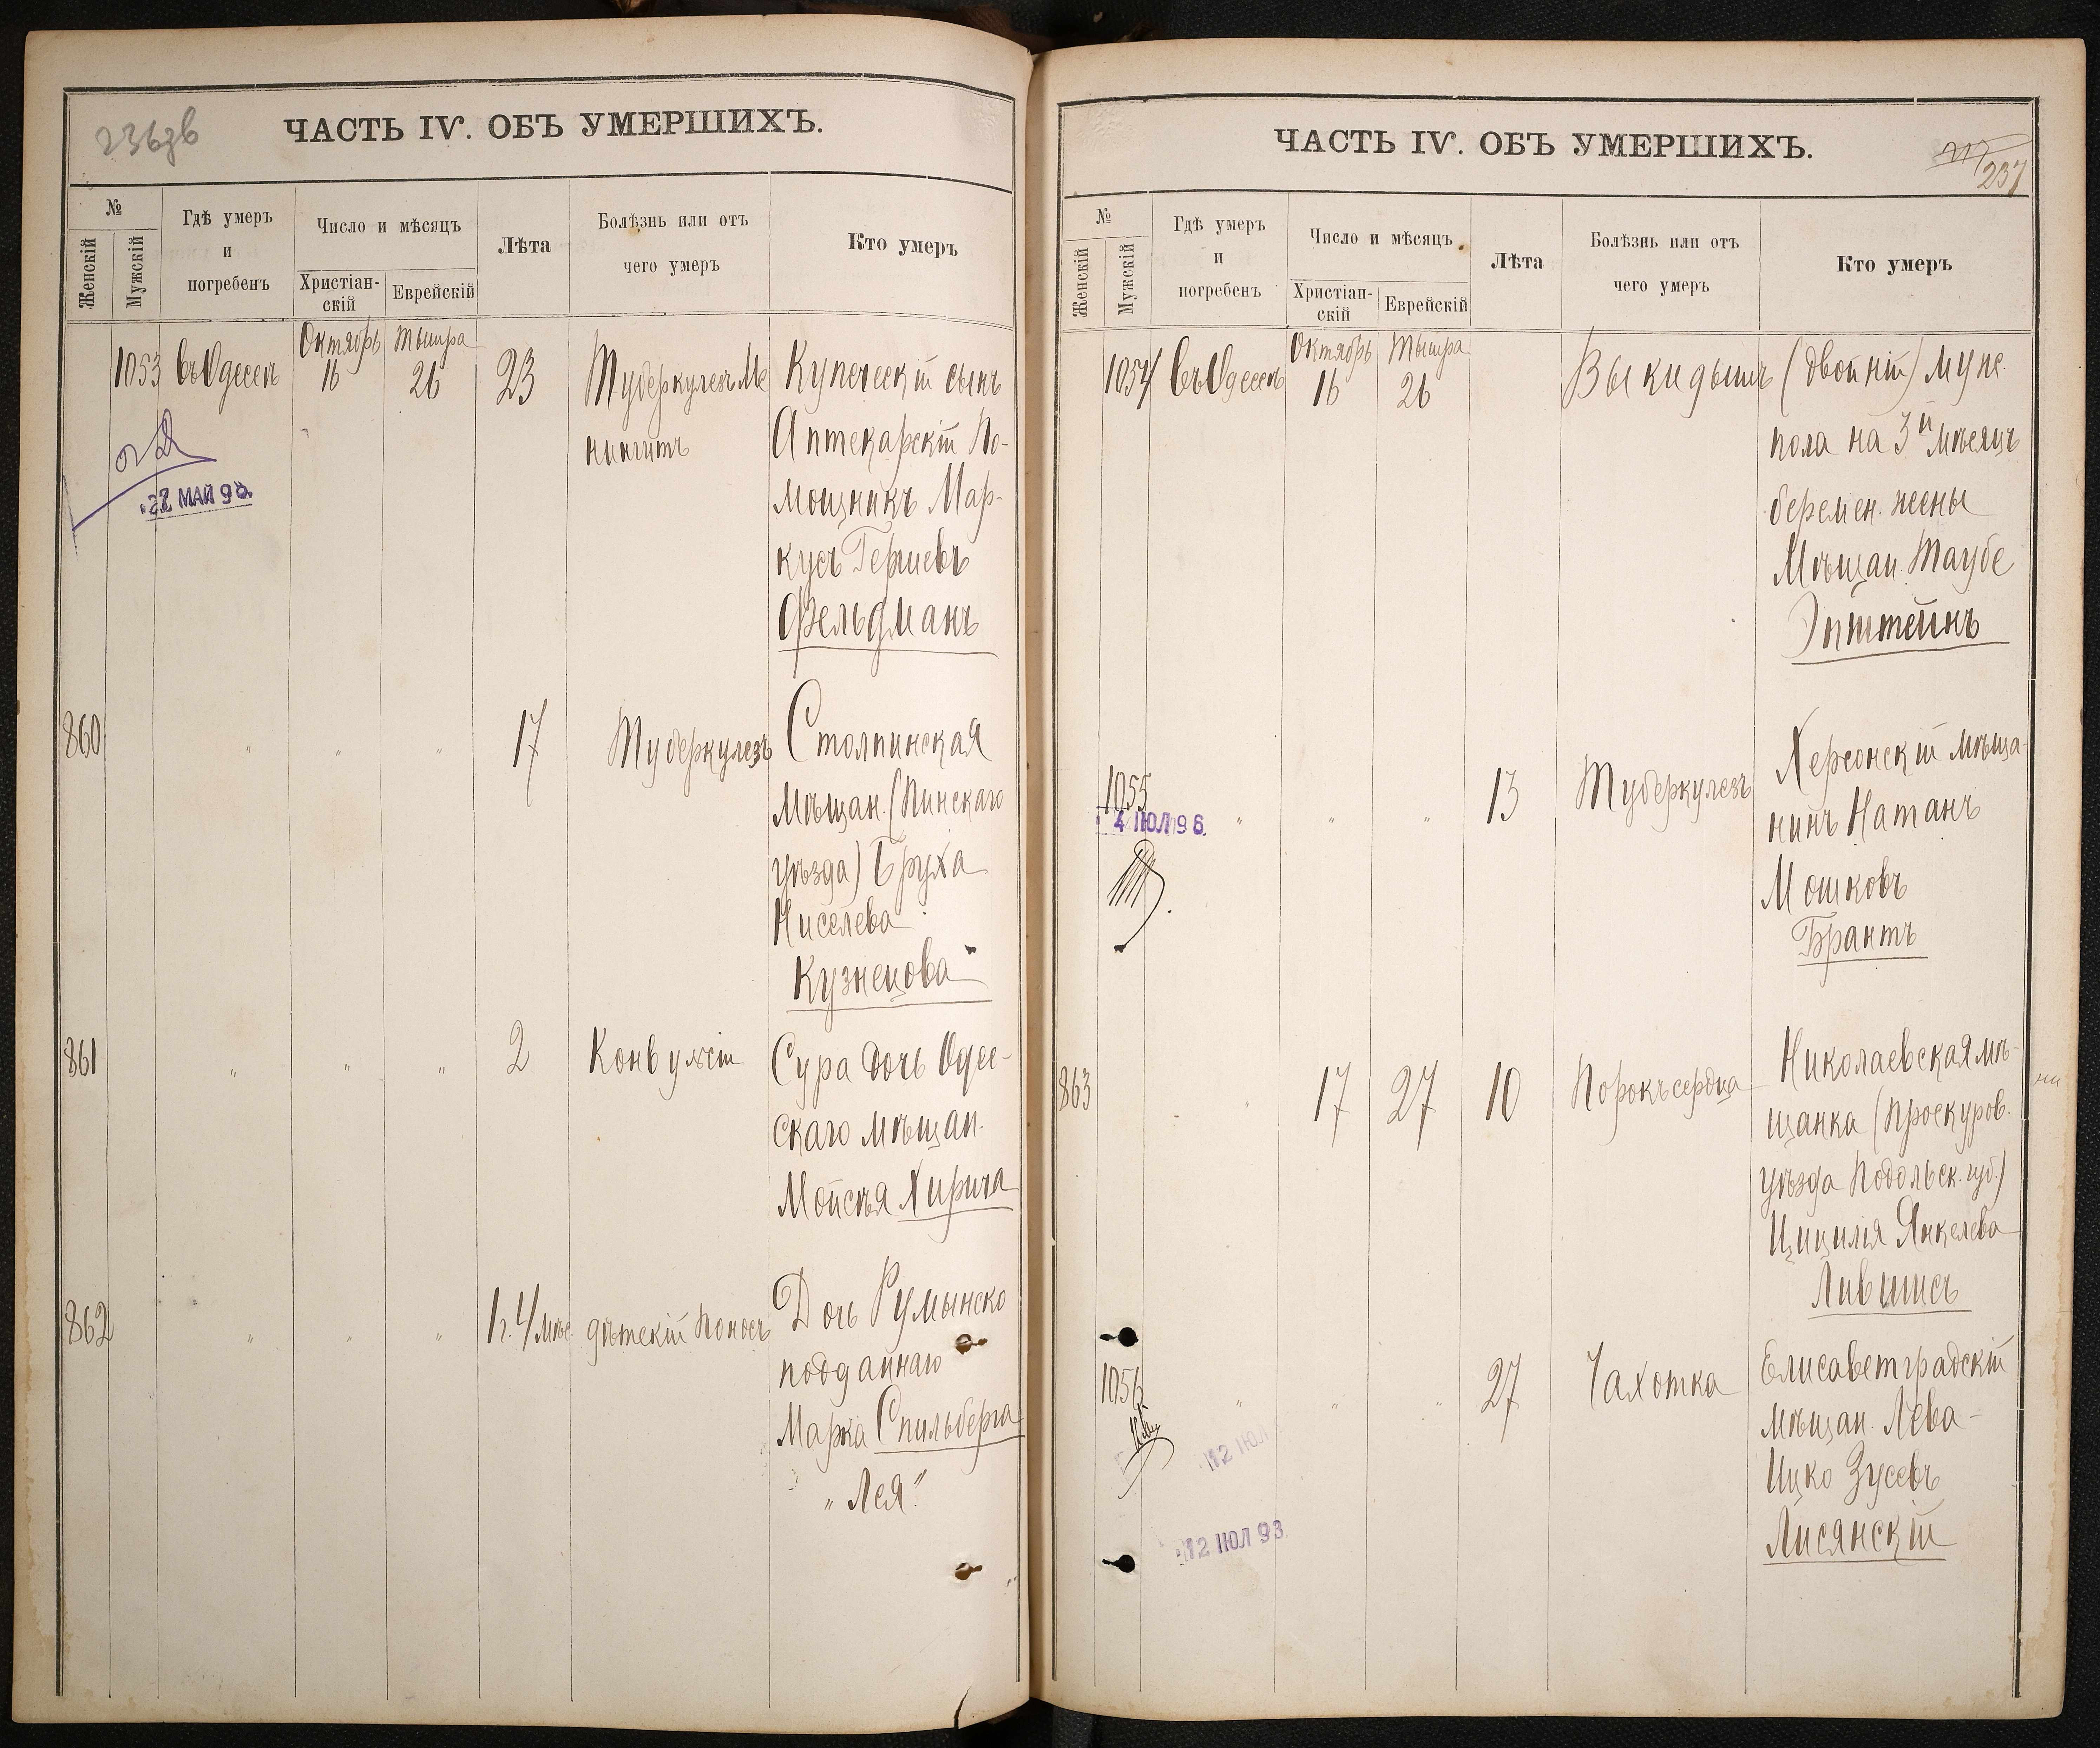 236зв
ЧАСТЬ IV. ОБЪ УМЕРШИХЪ.
№
Женскій
Мужскій
Гдѣ умеръ
и
погребенъ
Число и мѣсяцъ
Христіан-
скій
Еврейскій
Лѣта
Болѣзнь или отъ
чего умеръ
Кто умеръ
Октябрь Тышра
1053 Въ Одессѣ 16 26 23 Туберкулезъ Ме
нингитъ
Купеческій сынъ
Аптекарскій По-
мощникъ Мар-
кусъ Гершевъ
Фельдманъ
22 МАЙ 9
860 " " " 17 Туберкулезъ
Столпинская
Мѣщан. (Пинскаго
уѣзда) Бруха
Ниселева
Кузнецова
861 " " " 2 Конвулсіи
Сура дочь Одес-
скаго мѣщан.
Мойсѣя Хирича
862 " " " 1 г. 4 мѣс. дѣтскій поносъ
Дочь Румынско
подданнаго
Марка Спильберга
"Лея"
ЧАСТЬ IV. ОБЪ УМЕРШИХЪ.
237
№
Женскій
Мужскій
Гдѣ умеръ
и
погребенъ
Число и мѣсяцъ
Христіан-
скій
Еврейскій
Лѣта
Болѣзнь или отъ
чего умеръ
Кто умеръ
Октябрь Тышра
1054 Въ Одессѣ 16 26 Выкидышъ
(двойній) муж.
пола на 3й мѣсяцъ
беремен. жены
Мѣщан. Таубе
Эпштейнъ
1055 " " " 13 Туберкулезъ
4 ІЮЛ 96.
Херсонскій мѣща-
нинъ Натанъ
Мошковъ
Брантъ
863 " 17 27 10 Порокъ сердца
Николаевская мѣ-
щанка (Проскуров.
уѣзда Подольск. губ.)
Цицилія Янкелева
Лившисъ
1056 " " " 27 Чахотка
Елисаветградскій
мѣщан. Лева-
Ицко Зусевъ
Лисянскій
12 ІЮЛ
12 ІЮЛ 93.